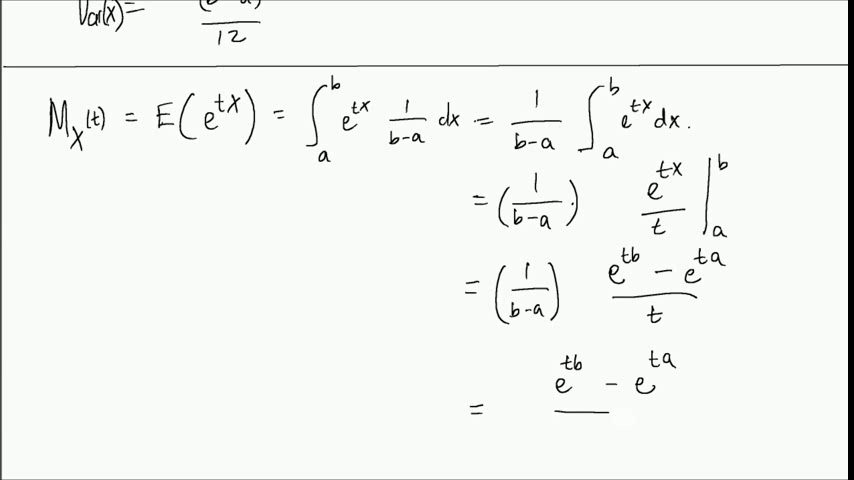 Var(x) = (b-a)² / 12
M_X(t) = E(e^{tX}) = ∫_a^b e^{tx} 1/(b-a) dx = 1/(b-a) ∫_a^b e^{tx} dx.
= (1/(b-a)) e^{tx}/t |_a^b
= (1/(b-a)) (e^{tb} - e^{ta})/t
= e^{tb} - e^{ta}